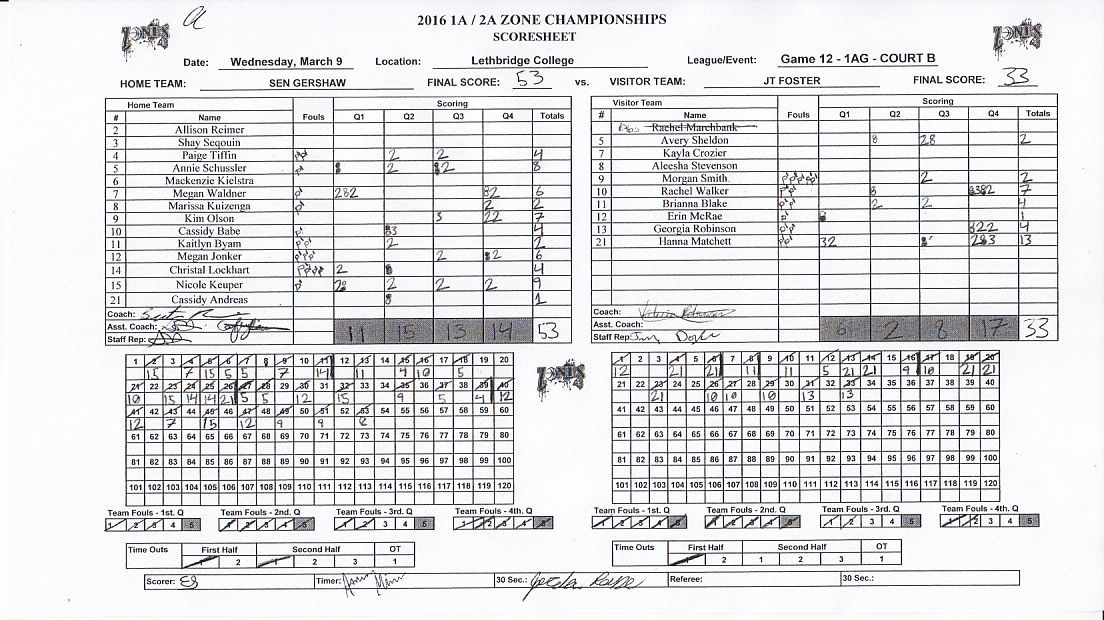 a
ZONES
2016 1A / 2A ZONE CHAMPIONSHIPS
SCORESHEET
ZONES
Date: Wednesday, March 9 Location: Lethbridge College League/Event: Game 12 - 1AG - COURT B
HOME TEAM: SEN GERSHAW FINAL SCORE: 53 vs. VISITOR TEAM: JT FOSTER FINAL SCORE: 33
Home Team Scoring
# Name Fouls Q1 Q2 Q3 Q4 Totals
2 Allison Reimer
3 Shay Seqouin
4 Paige Tiffin 2 2 4
5 Annie Schussler 2 2 8
6 Mackenzie Kielstra
7 Megan Waldner 2 2 2 6
8 Marissa Kuizenga 2 2
9 Kim Olson 3 22 7
10 Cassidy Babe 3 4
11 Kaitlyn Byam 2 2
12 Megan Jonker 2 2 6
14 Christal Lockhart 2 4
15 Nicole Keuper 2 2 2 2 9
21 Cassidy Andreas 1
Coach:
Asst. Coach:
Staff Rep:
11 15 13 14 53
Visitor Team Scoring
# Name Fouls Q1 Q2 Q3 Q4 Totals
Rachel Marchbank
5 Avery Sheldon 2 2
7 Kayla Crozier
8 Aleesha Stevenson
9 Morgan Smith 2 2
10 Rachel Walker 7
11 Brianna Blake 2 2 4
12 Erin McRae 1
13 Georgia Robinson 22 4
21 Hanna Matchett 32 13
Coach:
Asst. Coach:
Staff Rep:
6 2 8 17 33
1 2 3 4 5 6 7 8 9 10 11 12 13 14 15 16 17 18 19 20
15 7 15 5 5 7 14 11 4 10 5
21 22 23 24 25 26 27 28 29 30 31 32 33 34 35 36 37 38 39 40
10 15 14 14 21 5 5 12 15 9 5 4 12
41 42 43 44 45 46 47 48 49 50 51 52 53 54 55 56 57 58 59 60
12 7 15 12 9 9
61 62 63 64 65 66 67 68 69 70 71 72 73 74 75 76 77 78 79 80
81 82 83 84 85 86 87 88 89 90 91 92 93 94 95 96 97 98 99 100
101 102 103 104 105 106 107 108 109 110 111 112 113 114 115 116 117 118 119 120
ZONES
1 2 3 4 5 6 7 8 9 10 11 12 13 14 15 16 17 18 19 20
12 21 21 11 11 5 21 21 9 10 21 21
21 22 23 24 25 26 27 28 29 30 31 32 33 34 35 36 37 38 39 40
21 10 10 10 13 13
41 42 43 44 45 46 47 48 49 50 51 52 53 54 55 56 57 58 59 60
61 62 63 64 65 66 67 68 69 70 71 72 73 74 75 76 77 78 79 80
81 82 83 84 85 86 87 88 89 90 91 92 93 94 95 96 97 98 99 100
101 102 103 104 105 106 107 108 109 110 111 112 113 114 115 116 117 118 119 120
Team Fouls - 1st. Q Team Fouls - 2nd. Q Team Fouls - 3rd. Q Team Fouls - 4th. Q
1 2 3 4 5 1 2 3 4 5 1 2 3 4 5 1 2 3 4 5
Team Fouls - 1st. Q Team Fouls - 2nd. Q Team Fouls - 3rd. Q Team Fouls - 4th. Q
1 2 3 4 5 1 2 3 4 5 1 2 3 4 5 1 2 3 4 5
Time Outs First Half Second Half OT
1 2 1 2 3 1
Time Outs First Half Second Half OT
1 2 1 2 3 1
Scorer: Timer: 30 Sec.: Referee: 30 Sec.: